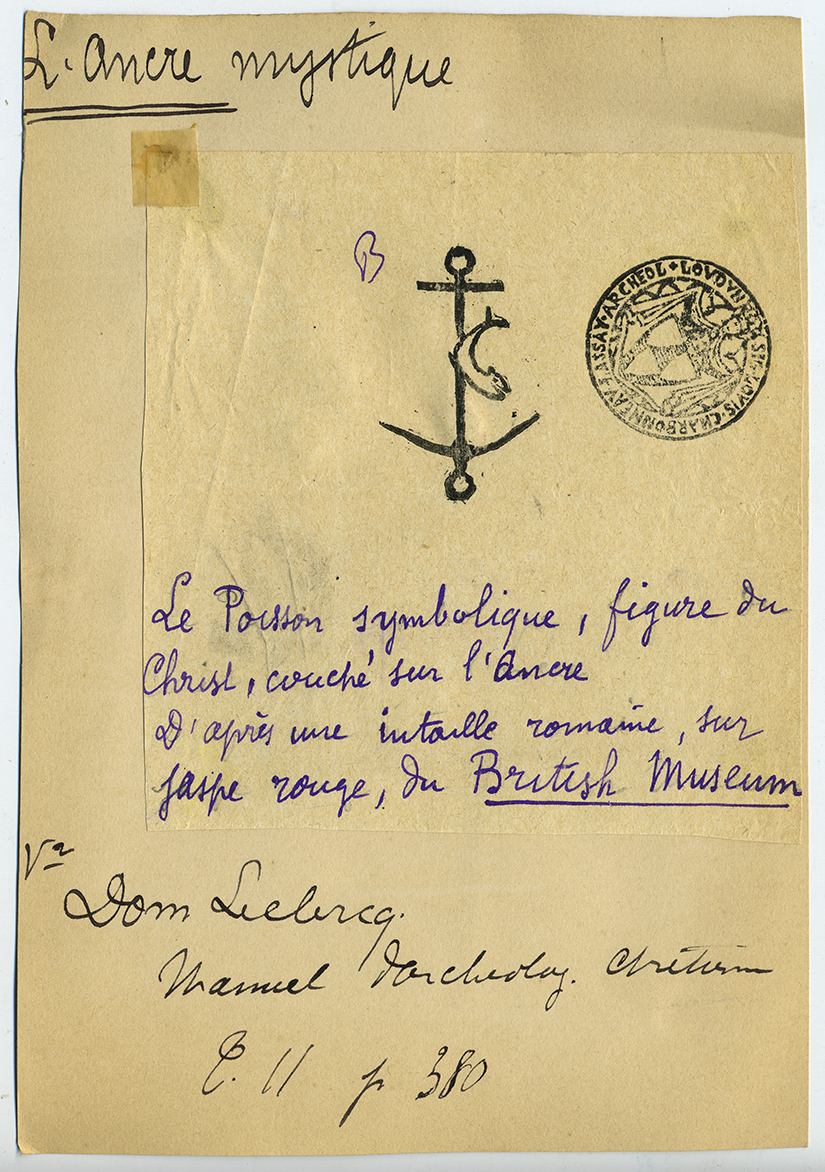 L'Ancre mystique
B
ARCHEOL + LOVDVN
SIG · LOVIS · CHARBONNEAV · L · ASSAY ·
Le Poisson symbolique, figure du
Christ, couché sur l'Ancre
D'après une intaille romaine, sur
jaspe rouge, du British Museum
Vr
Dom Leclercq.
Manuel d'archeolog. chrétienne
T. II p 380